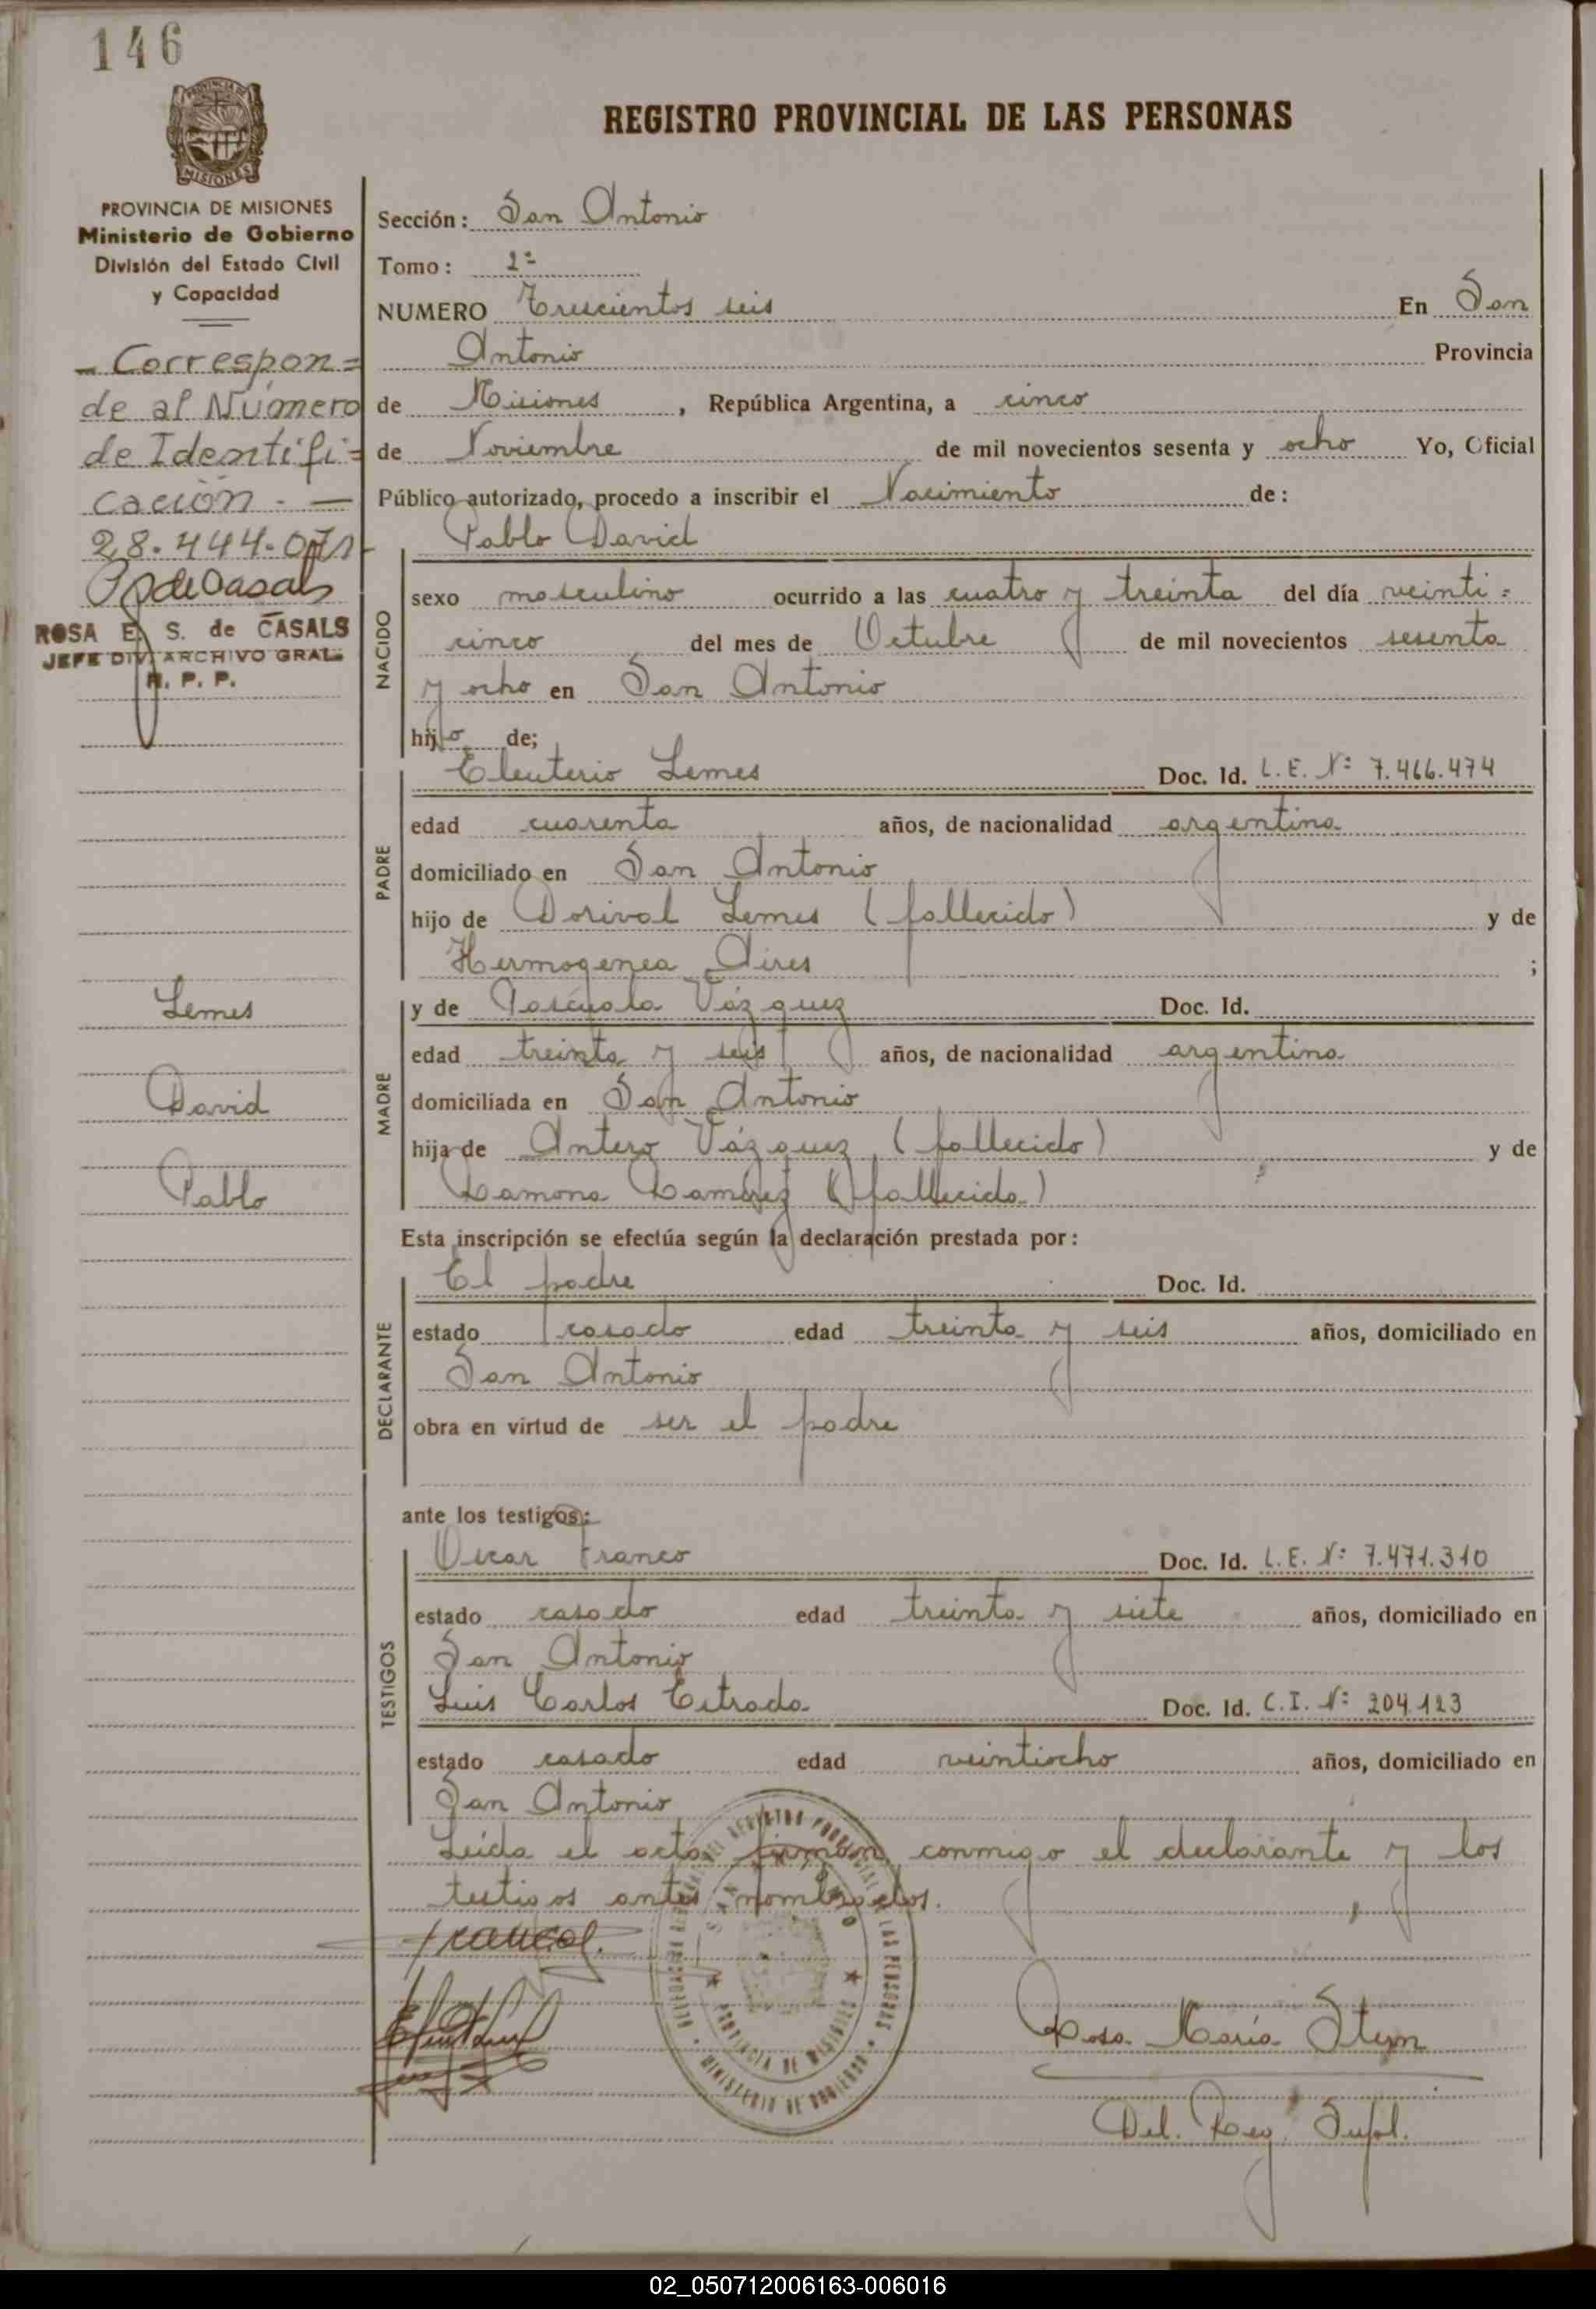 146
PROVINCIA DE MISIONES
Ministerio de Gobierno
División del Estado Civil
y Capacidad
- Correspon=
de al Número
de Identifi=
cación. —
28.444.071
ROSA E. S. de CASALS
JEFE DIV. ARCHIVO GRAL.
R. P. P.
Lemes
David
Pablo
REGISTRO PROVINCIAL DE LAS PERSONAS
Sección: San Antonio
Tomo: 1º
NUMERO Trescientos seis En San
Antonio Provincia
de Misiones, República Argentina, a cinco
de Noviembre de mil novecientos sesenta y ocho Yo, Oficial
Público autorizado, procedo a inscribir el Nacimiento de:
Pablo David
NACIDO
sexo masculino ocurrido a las cuatro y treinta del día veinti=
cinco del mes de Octubre de mil novecientos sesenta
y ocho en San Antonio
hijo de;
PADRE
Eleuterio Lemes Doc. Id. L.E. Nº 7.466.474
edad cuarenta años, de nacionalidad argentina
domiciliado en San Antonio
hijo de Dorival Lemes (fallecido) y de
Hermogenea Aires ;
MADRE
y de Pascuala Vázquez Doc. Id.
edad treinta y seis años, de nacionalidad argentina
domiciliada en San Antonio
hija de Antero Vázquez (fallecido) y de
Ramona Ramírez (fallecida)
Esta inscripción se efectúa según la declaración prestada por:
DECLARANTE
El padre Doc. Id.
estado casado edad treinta y seis años, domiciliado en
San Antonio
obra en virtud de ser el padre
ante los testigos:
TESTIGOS
Oscar Franco Doc. Id. L.E. Nº 7.471.310
estado casado edad treinta y siete años, domiciliado en
San Antonio
Luis Carlos Estrada Doc. Id. C.I. Nº 204.123
estado casado edad veintiocho años, domiciliado en
San Antonio
Leida el acta firman conmigo el declarante y los
testigos antes nombrados.
Rosa María Stem
Del. Reg. Supl.
PROVINCIA DE MISIONES
MINISTERIO DE GOBIERNO
02_050712006163-006016